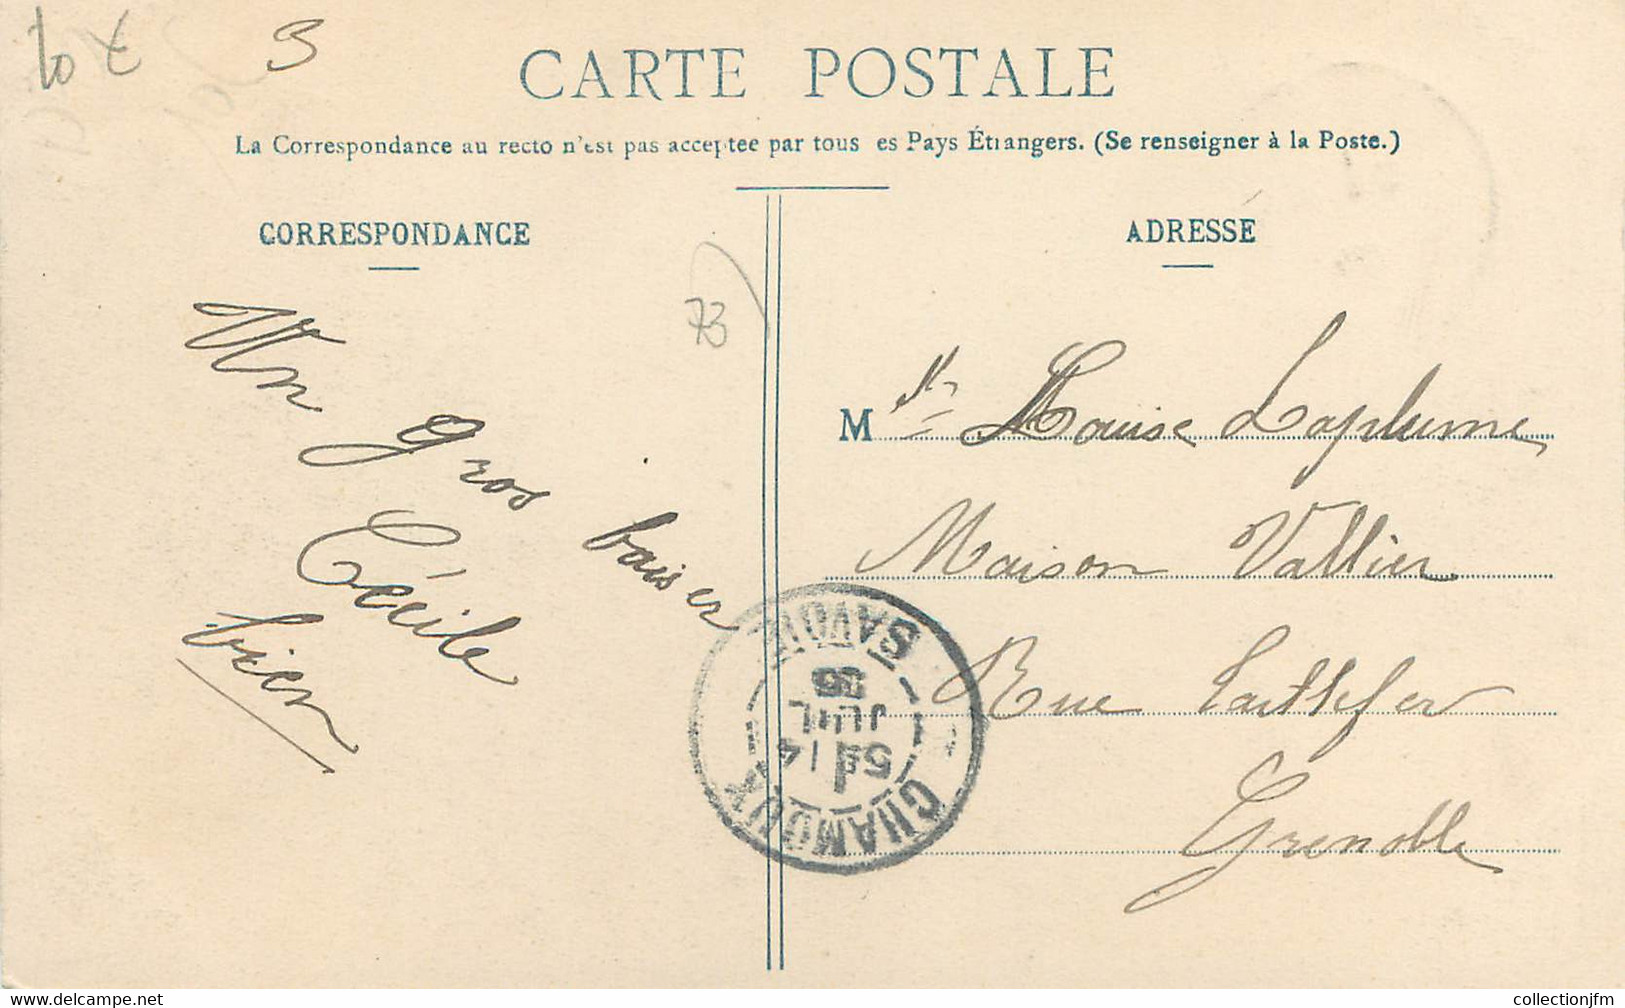 10 € 3
CARTE POSTALE
La Correspondance au recto n'est pas acceptee par tous es Pays Étrangers. (Se renseigner à la Poste.)
CORRESPONDANCE
ADRESSE
73
Un gros baiser
Cécile
bien
M lle Louise Laplume
Maison Vallier
Rue
Grenoble
CHAMOUX
SAVOIE
JUIL
https://www.delcampe.net
collectionjfm